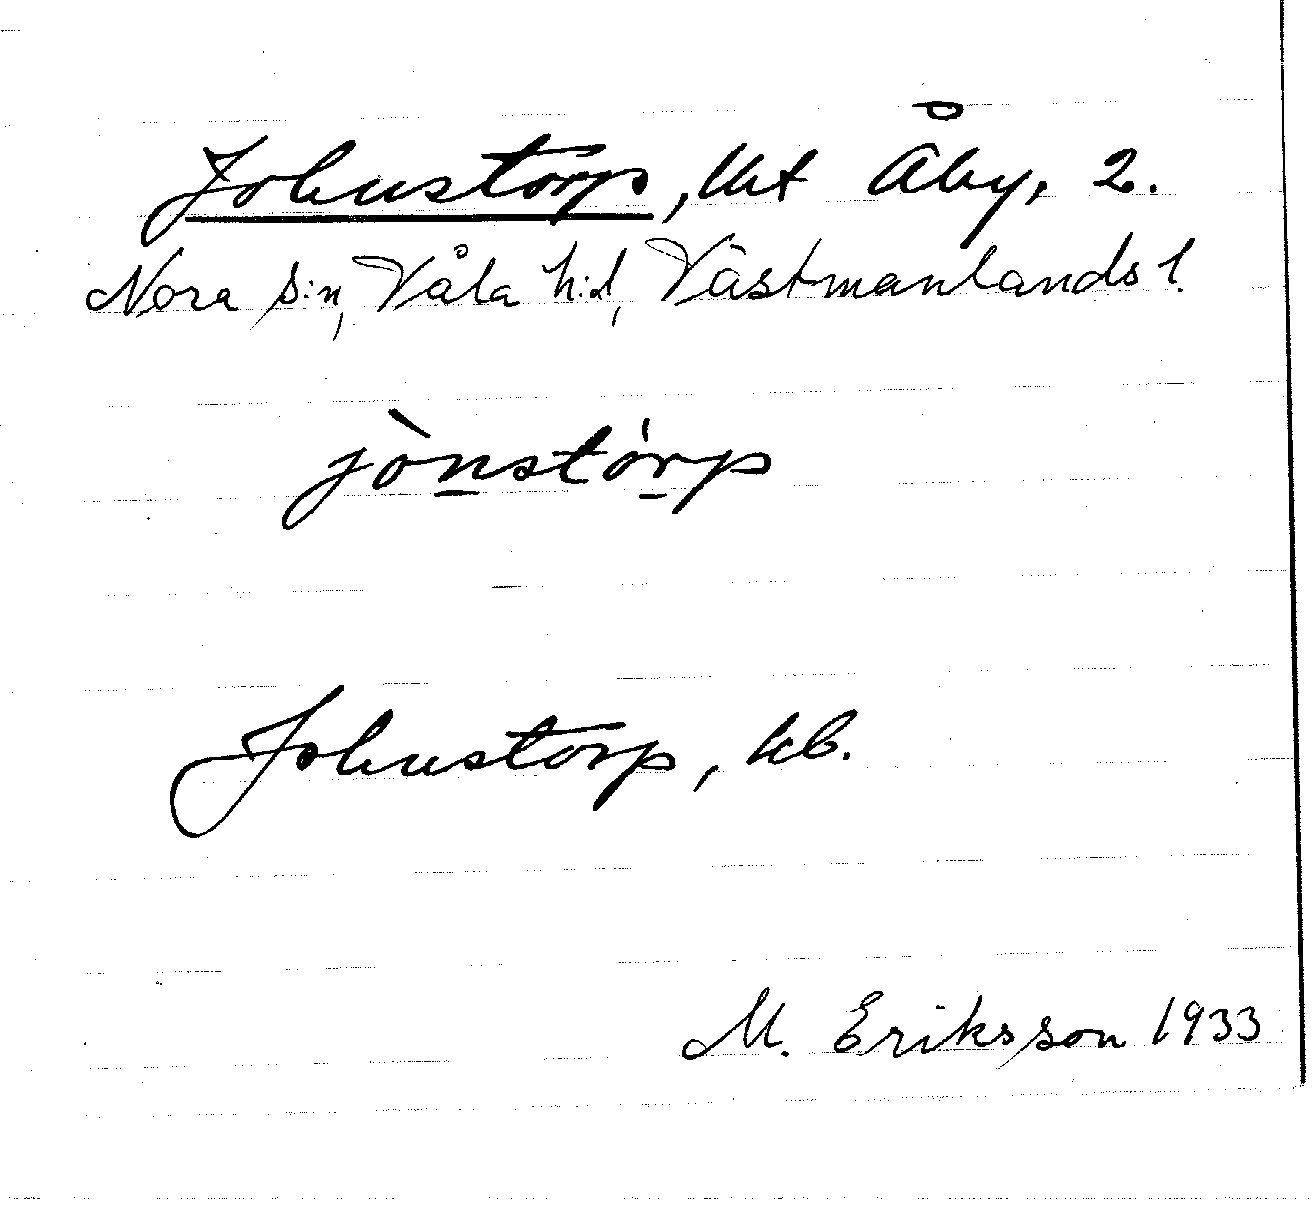 Johnstorp, lht Åby, 2.
Nora s:n, Våla h:d, Västmanlands l.
jònstórp
Johnstorp, kb.
M. Eriksson 1933